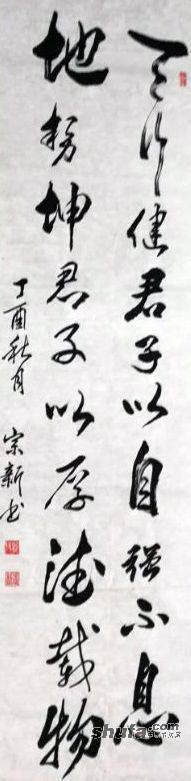 天行健君子以自強不息
地勢坤君子以厚德載物
丁酉秋月 宗新书